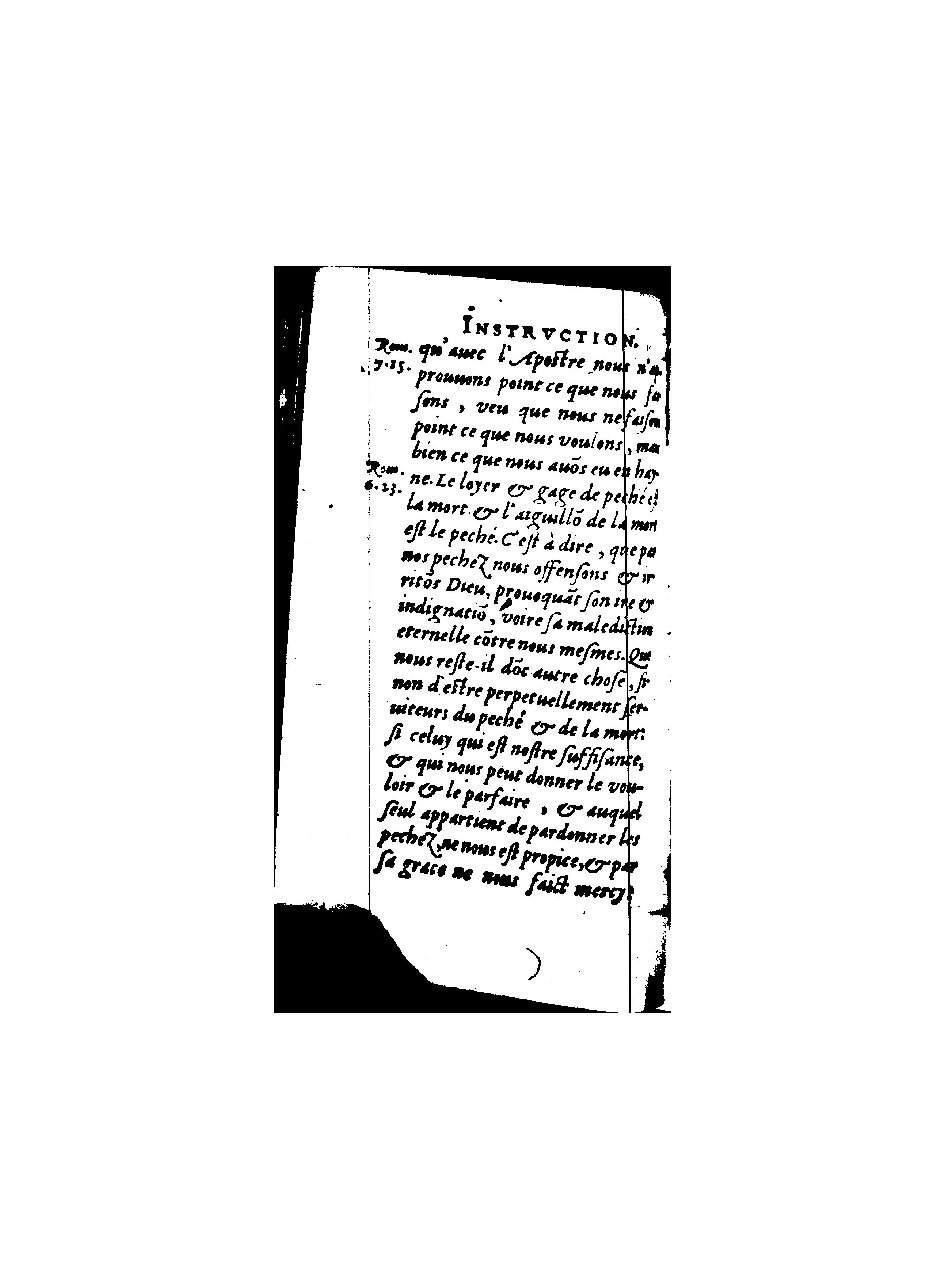 INSTRVCTION.
Rom. 7.15.
qu'auec l'Apostre nous n'ap
prouuons point ce que nous fa
ſons, veu que nous ne faiſon
point ce que nous voulons, mai
bien ce que nous auōs eu en hay
Rom. 6.23.
ne. Le loyer & gage de peché eſ
la mort & l'aiguillō de la mort
eſt le peché. C'eſt à dire, que pa
nos pechez nous offenſons & ir
ritōs Dieu, prouoquāt ſon ire &
indignatiō, voire ſa maledictiō
eternelle cōtre nous meſmes. Que
nous reſte-il dōc autre choſe, ſi
non d'eſtre perpetuellement ſer-
uiteurs du peché & de la mort:
ſi celuy qui eſt noſtre ſuffiſance,
& qui nous peut donner le vou-
loir & le parfaire, & auquel
ſeul appartient de pardonner les
pechez, ne nous eſt propice, & par
ſa grace ne nous faict mercy?